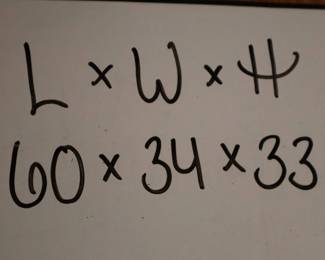 L x W x H
60 x 34 x 33